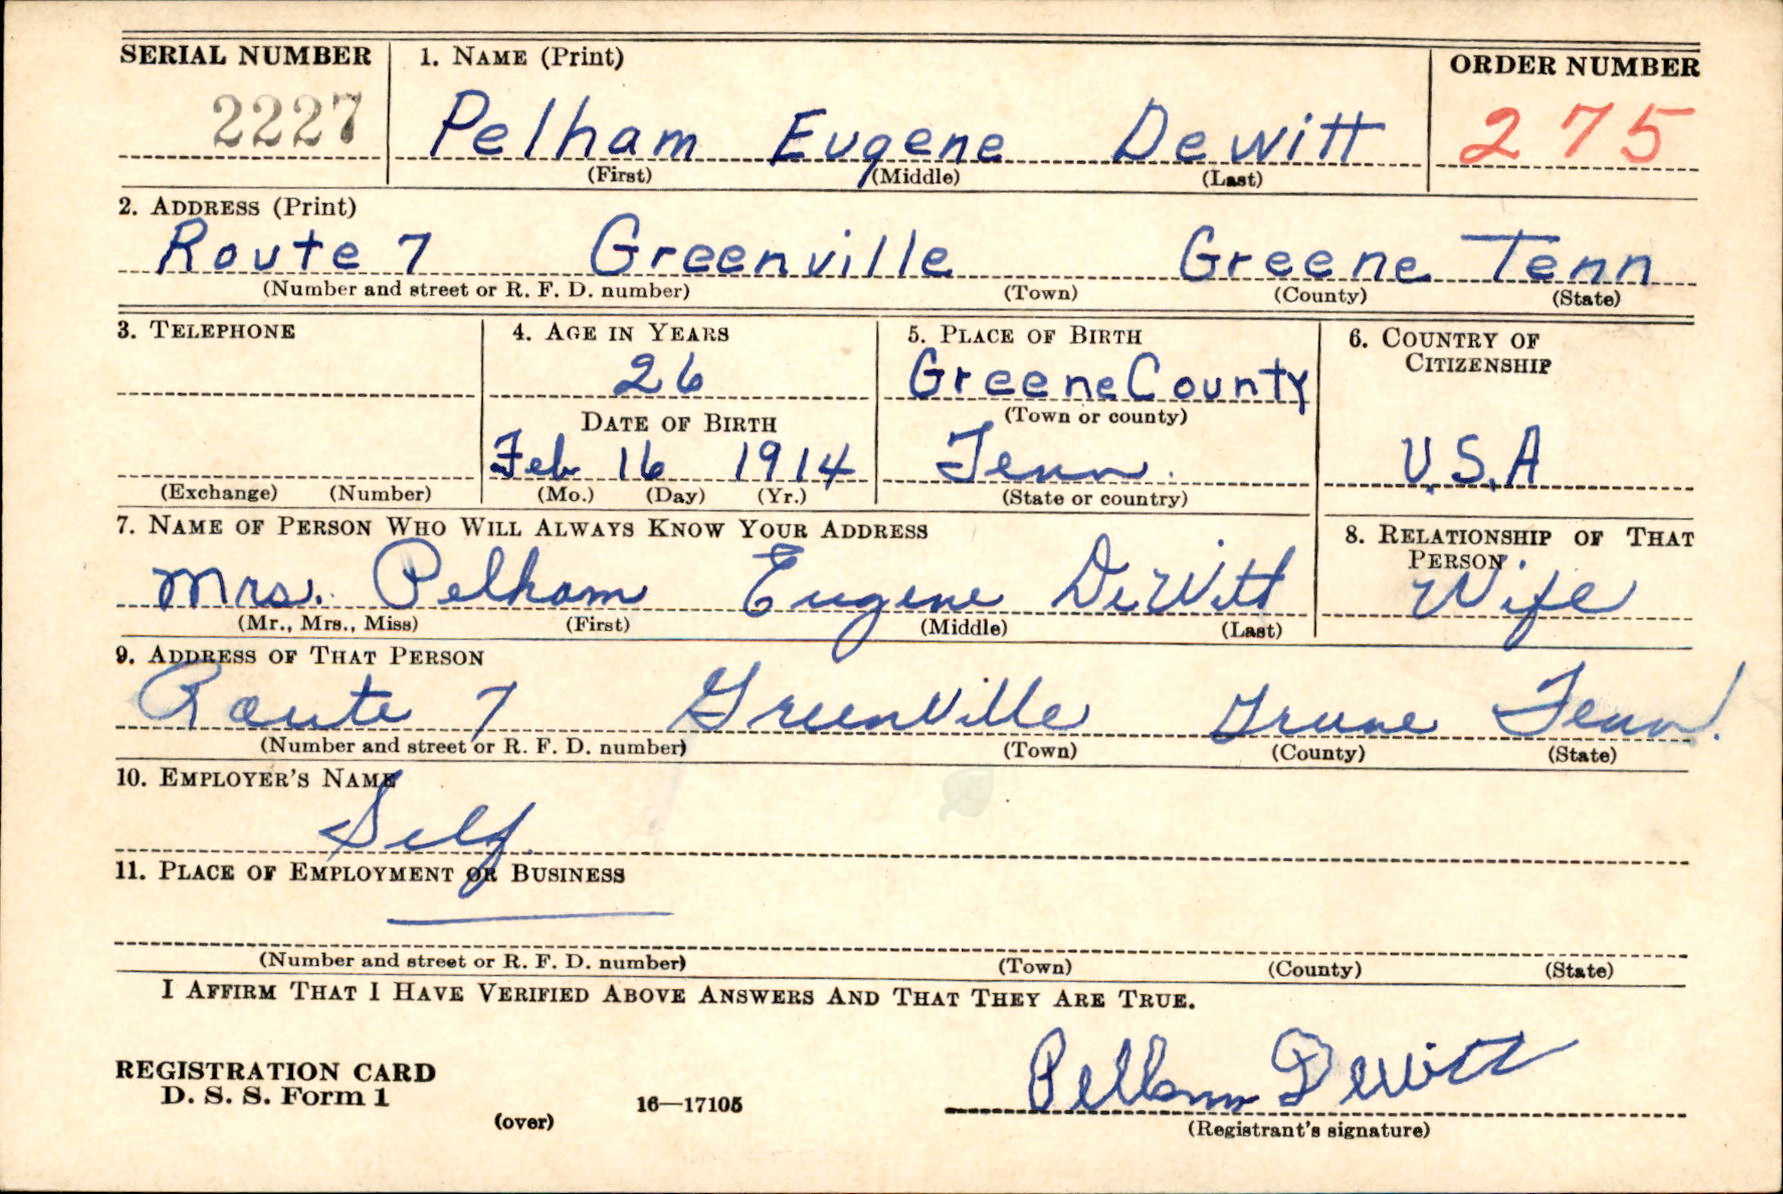 SERIAL NUMBER 1. NAME (Print) ORDER NUMBER
2227 Pelham Eugene Dewitt 275
(First) (Middle) (Last)
2. ADDRESS (Print)
Route 7 Greenville Greene Tenn
(Number and street or R. F. D. number) (Town) (County) (State)
3. TELEPHONE 4. AGE IN YEARS 5. PLACE OF BIRTH 6. COUNTRY OF CITIZENSHIP
26 Greene County
DATE OF BIRTH (Town or county)
Feb 16 1914 Tenn. U.S.A
(Exchange) (Number) (Mo.) (Day) (Yr.) (State or country)
7. NAME OF PERSON WHO WILL ALWAYS KNOW YOUR ADDRESS 8. RELATIONSHIP OF THAT PERSON
Mrs. Pelham Eugene DeWitt Wife
(Mr., Mrs., Miss) (First) (Middle) (Last)
9. ADDRESS OF THAT PERSON
Route 7 Greenville Greene Tenn.
(Number and street or R. F. D. number) (Town) (County) (State)
10. EMPLOYER'S NAME
Self
11. PLACE OF EMPLOYMENT OR BUSINESS
(Number and street or R. F. D. number) (Town) (County) (State)
I AFFIRM THAT I HAVE VERIFIED ABOVE ANSWERS AND THAT THEY ARE TRUE.
REGISTRATION CARD
D. S. S. Form 1
(over) 16—17105
Pelham Dewitt
(Registrant's signature)